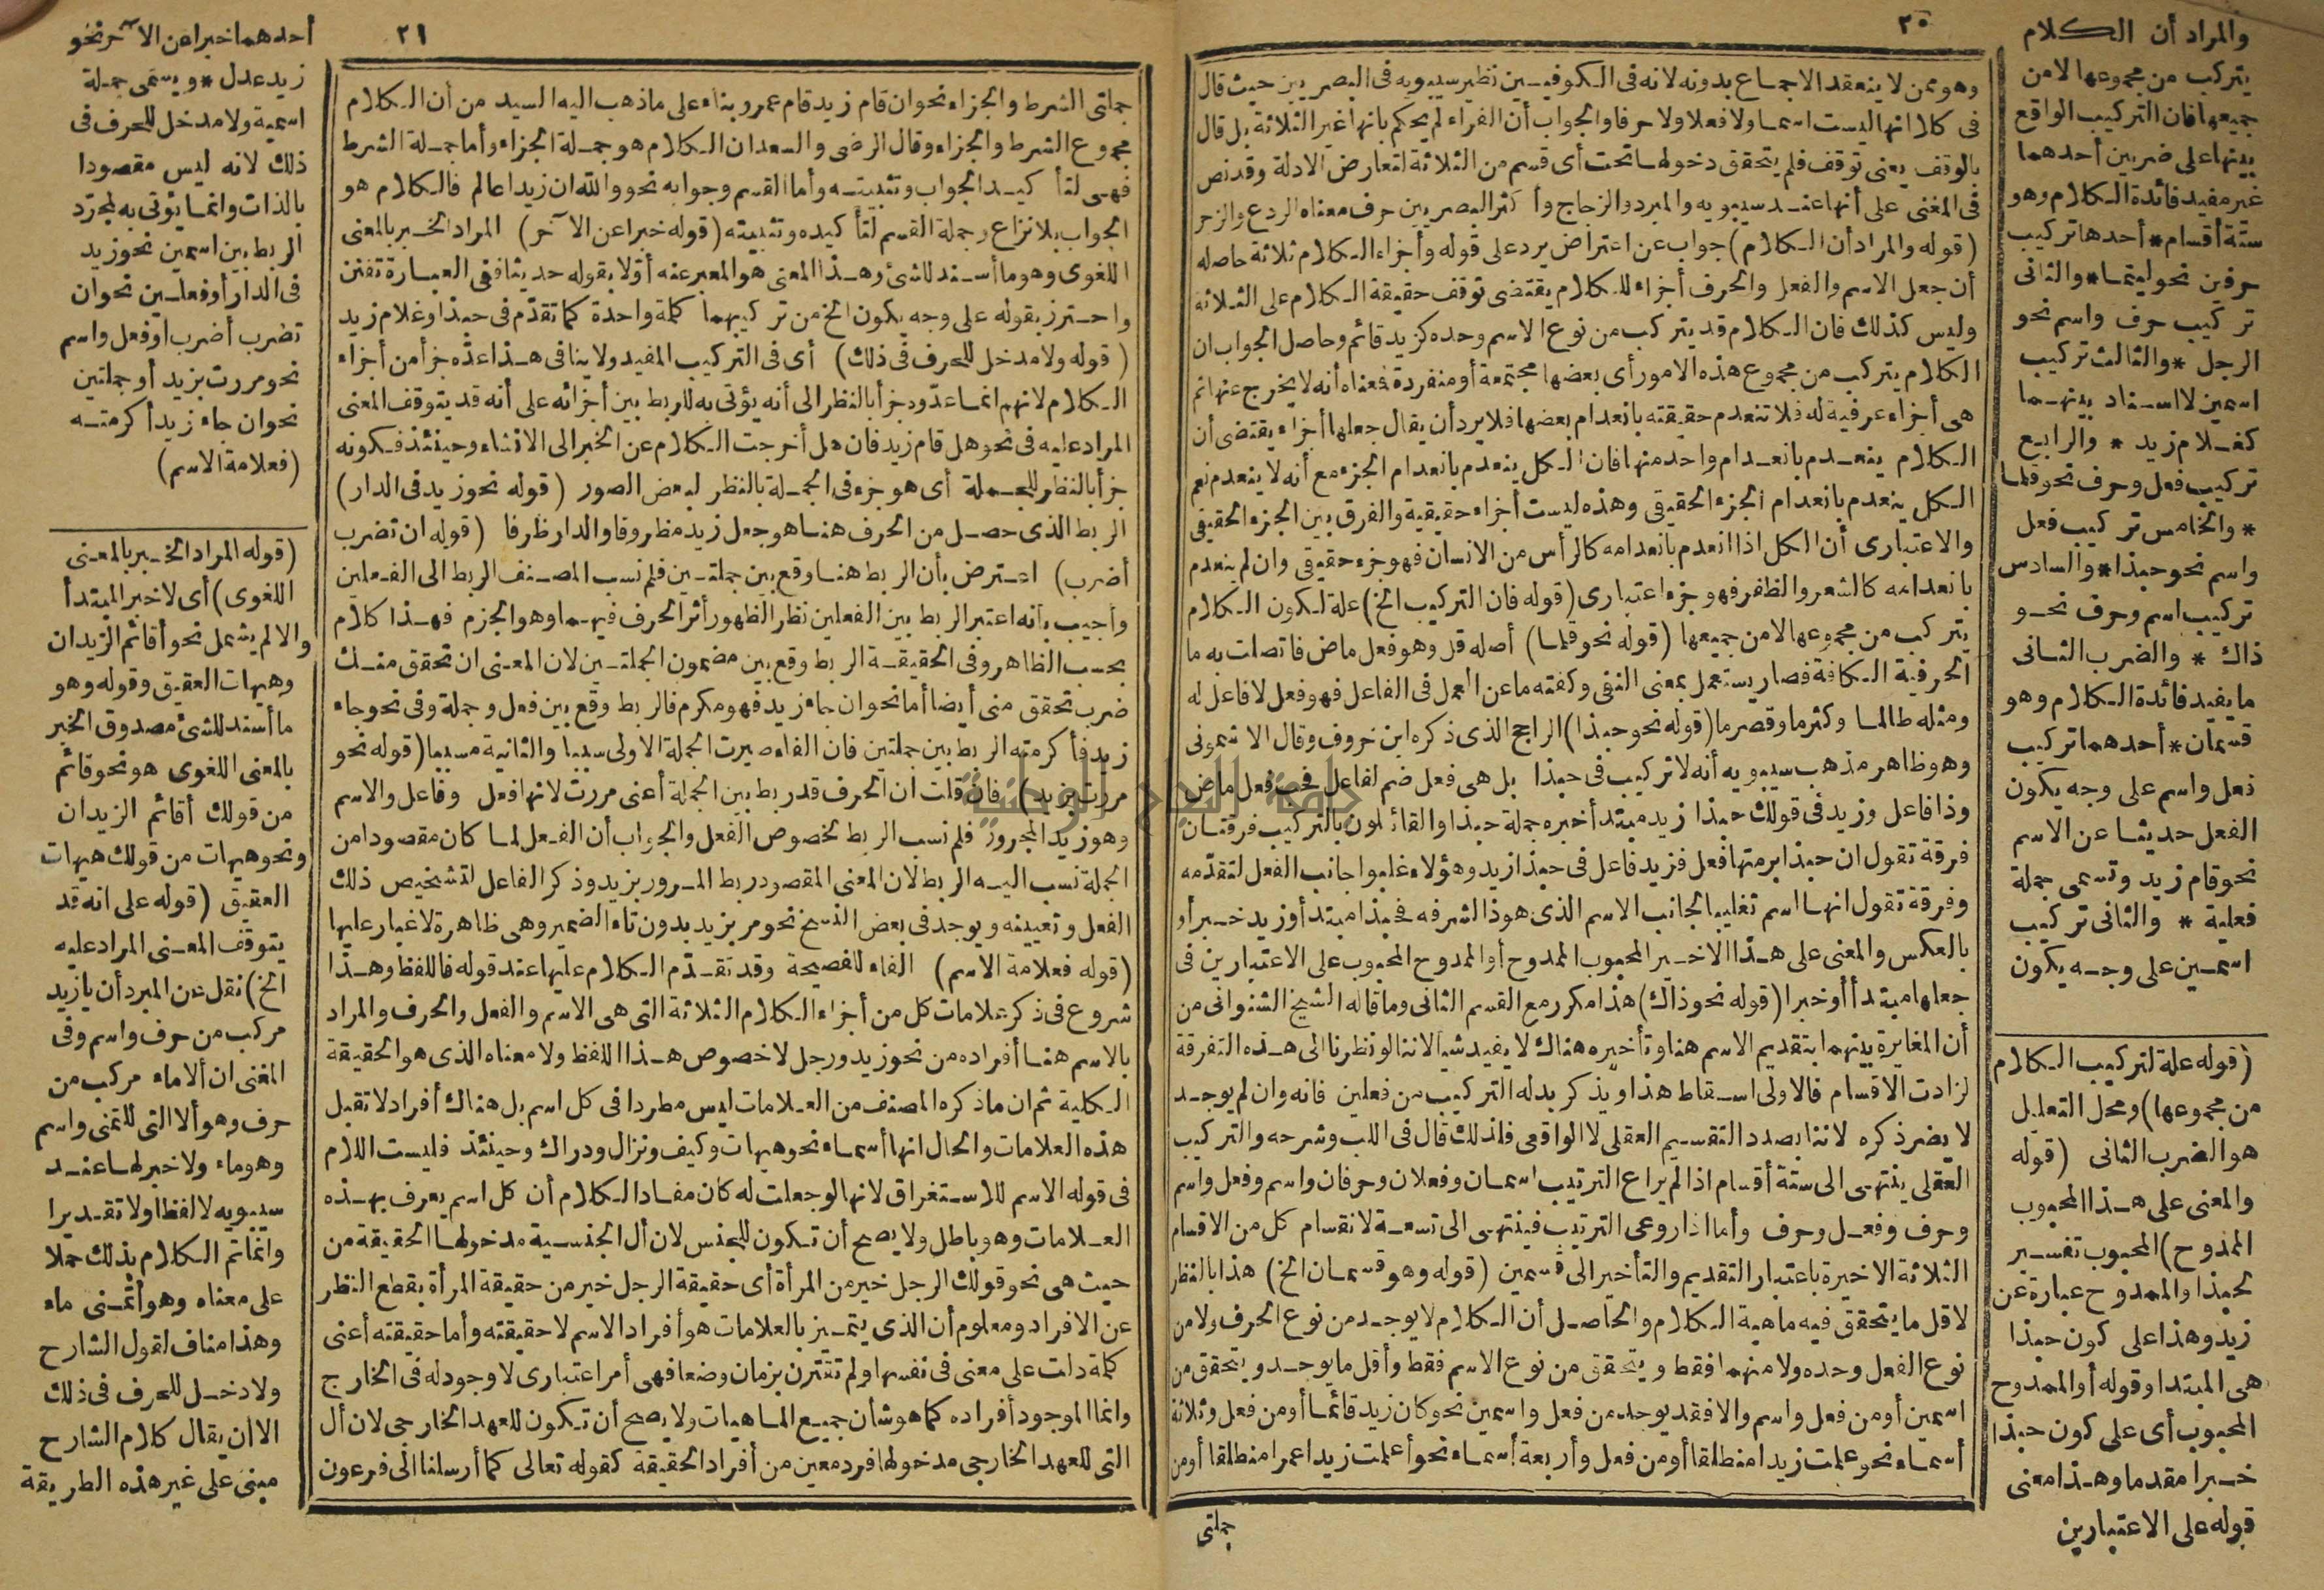 ٢٠
والمراد أن الكلام
يتركب من مجموعها لا من
جميعها فان التركيب الواقع
بينها على ضربين أحدهما
غير مفيد فائدة الكلام وهو
ستة أقسام * أحدها تركيب
حرفين نحو ليتما * والثانى
تركيب حرف واسم نحو
الرجل * والثالث تركيب
اسمين لا اسناد بينهما
كغلام زيد * والرابع
تركيب فعل وحرف نحو قلما
* والخامس تركيب فعل
واسم نحو حبذا * والسادس
تركيب اسم وحرف نحو
ذاك * والضرب الثانى
ما يفيد فائدة الكلام وهو
قسمان * أحدهما تركيب
فعل واسم على وجه يكون
الفعل حديثا عن الاسم
نحو قام زيد وتسمى جملة
فعلية * والثانى تركيب
اسمين على وجه يكون
(قوله علة لتركيب الكلام
من مجموعها) ومحل التعليل
هو الضرب الثانى (قوله
والمعنى على هذا المحبوب
الممدوح) المحبوب تفسير
لحبذا والممدوح عبارة عن
زيد وهذا على كون حبذا
هى المبتدا وقوله أو الممدوح
المحبوب أى على كون حبذا
خبرا مقدما وهذا معنى
قوله على الاعتبارين
وهو ممن لا ينعقد الاجماع بدونه لانه فى الكوفيين نظير سيبويه فى البصريين حيث قال
فى كلا انها ليست اسما ولا فعلا ولا حرفا والجواب أن الفراء لم يحكم بانها غير الثلاثة بل قال
بالوقف يعنى توقف فلم يتحقق دخولها تحت أى قسم من الثلاثة لتعارض الادلة وقد نص
فى المغنى على أنها عند سيبويه والمبرد والزجاج وأكثر البصريين حرف معناه الردع والزجر
(قوله والمراد أن الكلام) جواب عن اعتراض يرد على قوله وأجزاء الكلام ثلاثة حاصله
أن جعل الاسم والفعل والحرف أجزاء للكلام يقتضى توقف حقيقة الكلام على الثلاثة
وليس كذلك فان الكلام قد يتركب من نوع الاسم وحده كزيد قائم وحاصل الجواب ان
الكلام يتركب من مجموع هذه الامور أى بعضها مجتمعة أو منفردة فمعناه أنه لا يخرج عنها ثم
هى أجزاء عرفية له فلا تنعدم حقيقته بانعدام بعضها فلا يرد أن يقال جعلها أجزاء يقتضى أن
الكلام ينعدم بانعدام واحد منها فان الكل ينعدم بانعدام الجزء مع أنه لا ينعدم نعم
الكل ينعدم بانعدام الجزء الحقيقى وهذه ليست أجزاء حقيقية والفرق بين الجزء الحقيقى
والاعتبارى أن الكل اذا انعدم بانعدامه كالرأس من الانسان فهو جزء حقيقى وان لم ينعدم
بانعدامه كالشعر والظفر فهو جزء اعتبارى (قوله فان التركيب الخ) علة لكون الكلام
يتركب من مجموعها لا من جميعها (قوله نحو قلما) أصله قل وهو فعل ماض فاتصلت به ما
الحرفية الكافة فصار يستعمل بمعنى النفى وكفته ما عن العمل فى الفاعل فهو فعل لا فاعل له
ومثله طالما وكثرما وقصرما (قوله نحو حبذا) الراجح الذى ذكره ابن خروف وقال الاشمونى
وهو ظاهر مذهب سيبويه أنه لا تركيب فى حبذا بل هى فعل ضم لفاعل فحب فعل ماض
وذا فاعل وزيد فى قولك حبذا زيد مبتدأ خبره جملة حبذا والقائلون بالتركيب فرقتان
فرقة تقول ان حبذا برمتها فعل فزيد فاعل فى حبذا زيد وهؤلاء غلبوا جانب الفعل لتقدمه
وفرقة تقول انها اسم تغليبا لجانب الاسم الذى هو ذا لشرفه فحبذا مبتدأ وزيد خبر أو
بالعكس والمعنى على هذا الاخير المحبوب الممدوح أو الممدوح المحبوب على الاعتبارين فى
جعلها مبتدأ أو خبرا (قوله نحو ذاك) هذا مكرر مع القسم الثانى وما قاله الشيخ الشنوانى من
أن المغايرة بينهما بتقديم الاسم هنا وتأخيره هناك لا يفيد شيأ لاننا لو نظرنا الى هذه التفرقة
لزادت الاقسام فالاولى اسقاط هذا ويذكر بدله التركيب من فعلين فانه وان لم يوجد
لا يضر ذكره لاننا بصدد التقسيم العقلى لا الواقعى فلذلك قال فى اللب وشرحه والتركيب
العقلى ينتهى الى ستة أقسام اذا لم يراع الترتيب اسمان وفعلان وحرفان واسم وفعل واسم
وحرف وفعل وحرف وأما اذا روعى الترتيب فينتهى الى تسعة لانقسام كل من الاقسام
الثلاثة الاخيرة باعتبار التقديم والتأخير الى قسمين (قوله وهو قسمان الخ) هذا بالنظر
لاقل ما يتحقق فيه ماهية الكلام والحاصل أن الكلام لا يوجد من نوع الحرف ولا من
نوع الفعل وحده ولا منهما فقط ويتحقق من نوع الاسم فقط وأقل ما يوجد ويتحقق من
اسمين أو من فعل واسم والا فقد يوجد من فعل واسمين نحو كان زيد قائما أو من فعل وثلاثة
أسماء نحو علمت زيدا منطلقا أو من فعل وأربعة أسماء نحو أعلمت زيدا عمرا منطلقا أو من
جملتى
٢١
جملتى الشرط والجزاء نحو ان قام زيد قام عمرو بناء على ما ذهب اليه السيد من أن الكلام
مجموع الشرط والجزاء وقال الرضى والسعد ان الكلام هو جملة الجزاء وأما جملة الشرط
فهى لتأكيد الجواب وتثبيته وأما القسم وجوابه نحو والله ان زيدا عالم فالكلام هو
الجواب بلا نزاع وجملة القسم لتأكيده وتثبيته (قوله خبرا عن الآخر) المراد الخبر بالمعنى
اللغوى وهو ما أسند للشئ وهذا المعنى هو المعبر عنه أولا بقوله حديثا ففى العبارة تفنن
واحترز بقوله على وجه يكون الخ من تركيبهما كلمة واحدة كما تقدم فى حبذا وغلام زيد
(قوله ولا مدخل للحرف فى ذلك) أى فى التركيب المفيد ولا ينافى هذا عده جزأ من أجزاء
الكلام لانهم انما عدوه جزأ بالنظر الى أنه يؤتى به للربط بين أجزائه على أنه قد يتوقف المعنى
المراد عليه فى نحو هل قام زيد فان هل أخرجت الكلام عن الخبر الى الانشاء وحينئذ فكونه
جزأ بالنظر للجملة أى هو جزء فى الجملة بالنظر لبعض الصور (قوله نحو زيد فى الدار)
الربط الذى حصل من الحرف هنا هو جعل زيد مظروفا والدار ظرفا (قوله ان تضرب
أضرب) اعترض بأن الربط هنا وقع بين جملتين فلم نسب المصنف الربط الى الفعلين
وأجيب بأنه اعتبر الربط بين الفعلين نظرا لظهور أثر الحرف فيهما وهو الجزم فهذا كلام
بحسب الظاهر وفى الحقيقة الربط وقع بين مضمون الجملتين لان المعنى ان تحقق منك
ضرب تحقق منى أيضا أما نحو ان جاء زيد فهو مكرم فالربط وقع بين فعل وجملة وفى نحو جاء
زيد فأكرمته الربط بين جملتين فان الفاء صيرت الجملة الاولى سببا والثانية مسببا (قوله نحو
مررت بزيد) فان قلت ان الحرف قد ربط بين الجملة أعنى مررت لانها فعل وفاعل والاسم
وهو زيد المجرور فلم نسب الربط لخصوص الفعل والجواب أن الفعل لما كان مقصودا من
الجملة نسب اليه الربط لان المعنى المقصود ربط المرور بزيد وذكر الفاعل لتشخيص ذلك
الفعل وتعيينه ويوجد فى بعض النسخ نحو مر بزيد بدون تاء الضمير وهى ظاهرة لا غبار عليها
(قوله فعلامة الاسم) الفاء للفصيحة وقد تقدم الكلام عليها عند قوله فاللفظ وهذا
شروع فى ذكر علامات كل من أجزاء الكلام الثلاثة التى هى الاسم والفعل والحرف والمراد
بالاسم هنا أفراده من نحو زيد ورجل لا خصوص هذا اللفظ ولا معناه الذى هو الحقيقة
الكلية ثم ان ما ذكره المصنف من العلامات ليس مطردا فى كل اسم بل هناك أفراد لا تقبل
هذه العلامات والحال انها أسماء نحو هيهات وكيف ونزال ودراك وحينئذ فليست اللام
فى قوله الاسم للاستغراق لانها لو جعلت له كان مفاد الكلام أن كل اسم يعرف بهذه
العلامات وهو باطل ولا يصح أن تكون للجنس لان أل الجنسية مدخولها الحقيقة من
حيث هى نحو قولك الرجل خير من المرأة أى حقيقة الرجل خير من حقيقة المرأة بقطع النظر
عن الافراد ومعلوم أن الذى يتميز بالعلامات هو أفراد الاسم لا حقيقته وأما حقيقته أعنى
كلمة دلت على معنى فى نفسها ولم تقترن بزمان وضعا فهى أمر اعتبارى لا وجود له فى الخارج
وانما الموجود أفراده كما هو شأن جميع الماهيات ولا يصح أن تكون للعهد الخارجى لان أل
التى للعهد الخارجى مدخولها فرد معين من أفراد الحقيقة كقوله تعالى كما أرسلنا الى فرعون
أحدهما خبرا عن الآخر نحو
زيد عدل * ويسمى جملة
اسمية ولا مدخل للحرف فى
ذلك لانه ليس مقصودا
بالذات وانما يؤتى به لمجرد
الربط بين اسمين نحو زيد
فى الدار أو فعلين نحو ان
تضرب أضرب أو فعل واسم
نحو مررت بزيد أو جملتين
نحو ان جاء زيد أكرمته
(فعلامة الاسم)
(قوله المراد الخبر بالمعنى
اللغوى) أى لا خبر المبتدأ
والا لم يشمل نحو أقائم الزيدان
وهيهات العقيق وقوله وهو
ما أسند للشئ مصدوق الخبر
بالمعنى اللغوى هو نحو قائم
من قولك أقائم الزيدان
ونحو هيهات من قولك هيهات
العقيق (قوله على انه قد
يتوقف المعنى المراد عليه
الخ) نقل عن المبرد أن يا زيد
مركب من حرف واسم وفى
المغنى ان ألا ماء مركب من
حرف وهو ألا التى للتمنى واسم
وهو ماء ولا خبر لها عند
سيبويه لا لفظا ولا تقديرا
وانما تم الكلام بذلك حملا
على معناه وهو أتمنى ماء
وهذا مناف لقول الشارح
ولا دخل للحرف فى ذلك
الا ان يقال كلام الشارح
مبنى على غير هذه الطريقة